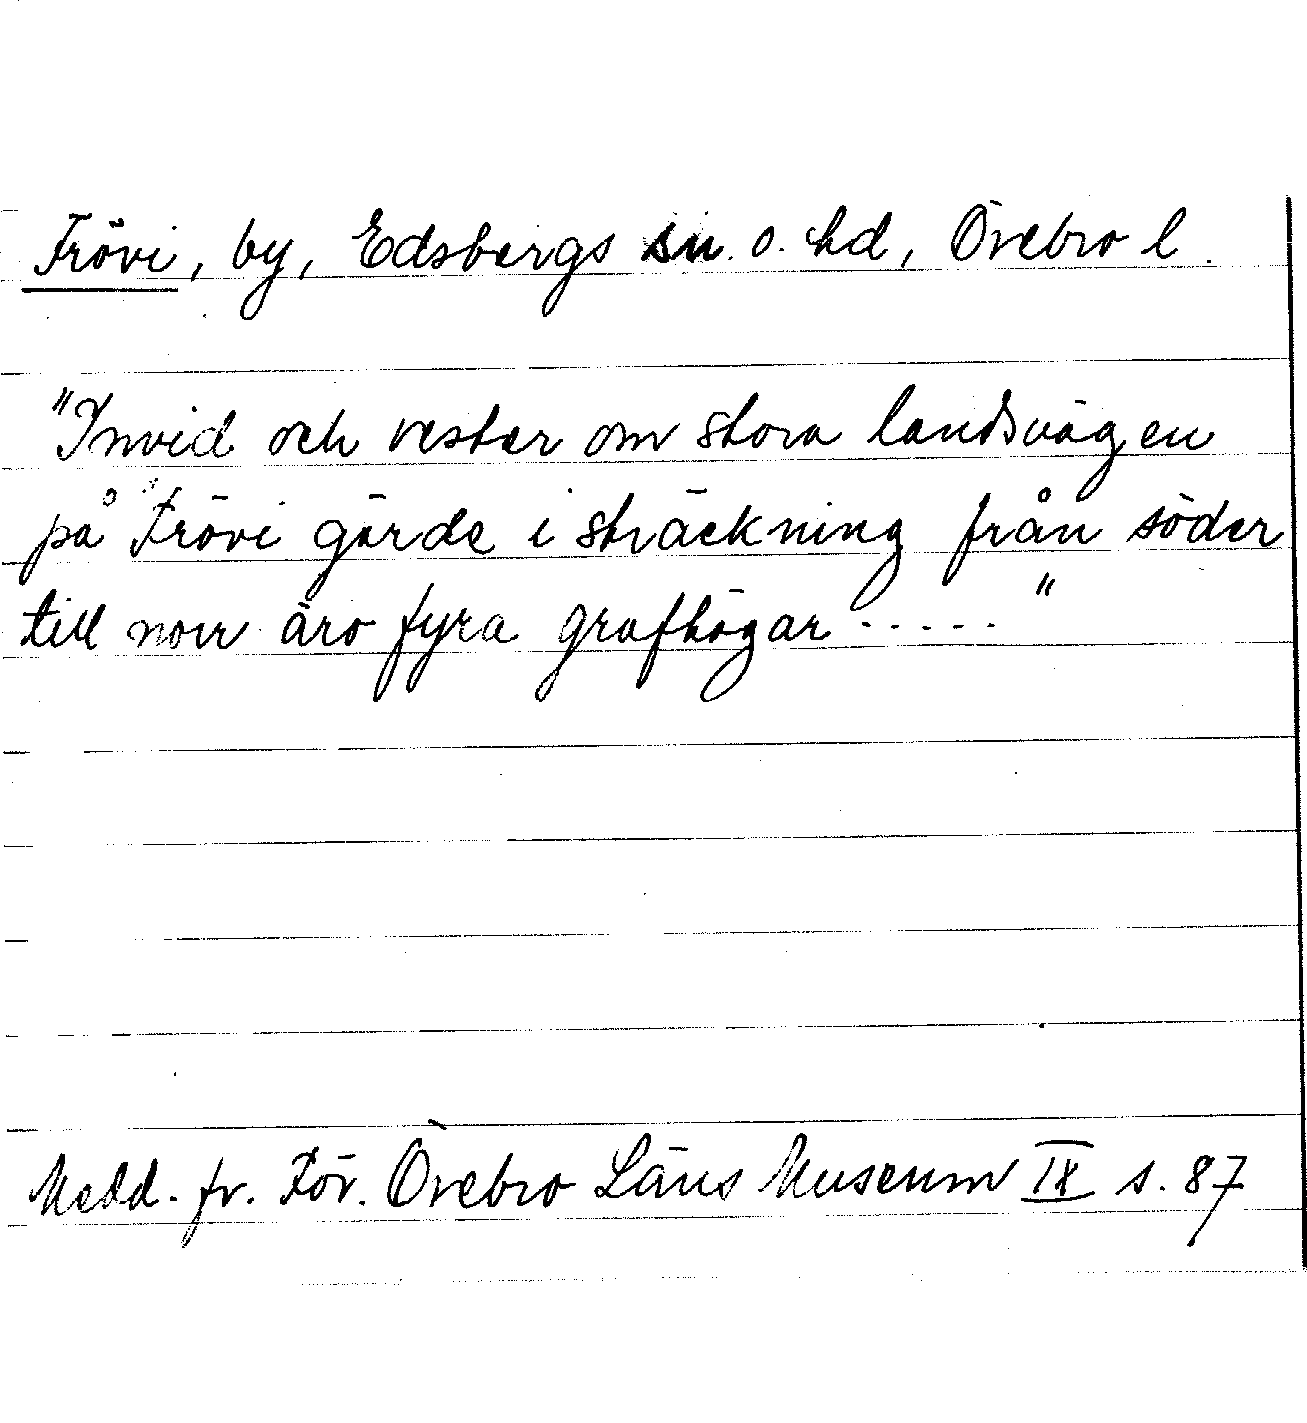 Frövi, by, Edsbergs sn. o. hd, Örebro l.
"Invid och vester om stora landsvägen
på Frövi gärde i sträckning från söder
till norr äro fyra grafhögar ....."
Medd. fr. För. Örebro Läns Museum IX s. 87